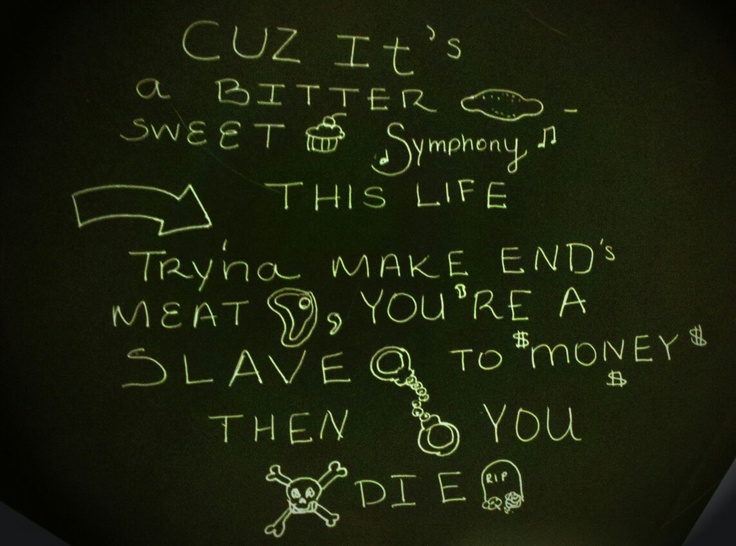 CUZ It's
a BITTER -
SWEET Symphony
THIS LIFE
TRY'na MAKE END's
MEAT, YOU'RE A
SLAVE TO $MONEY$
$
THEN YOU
DIE RIP